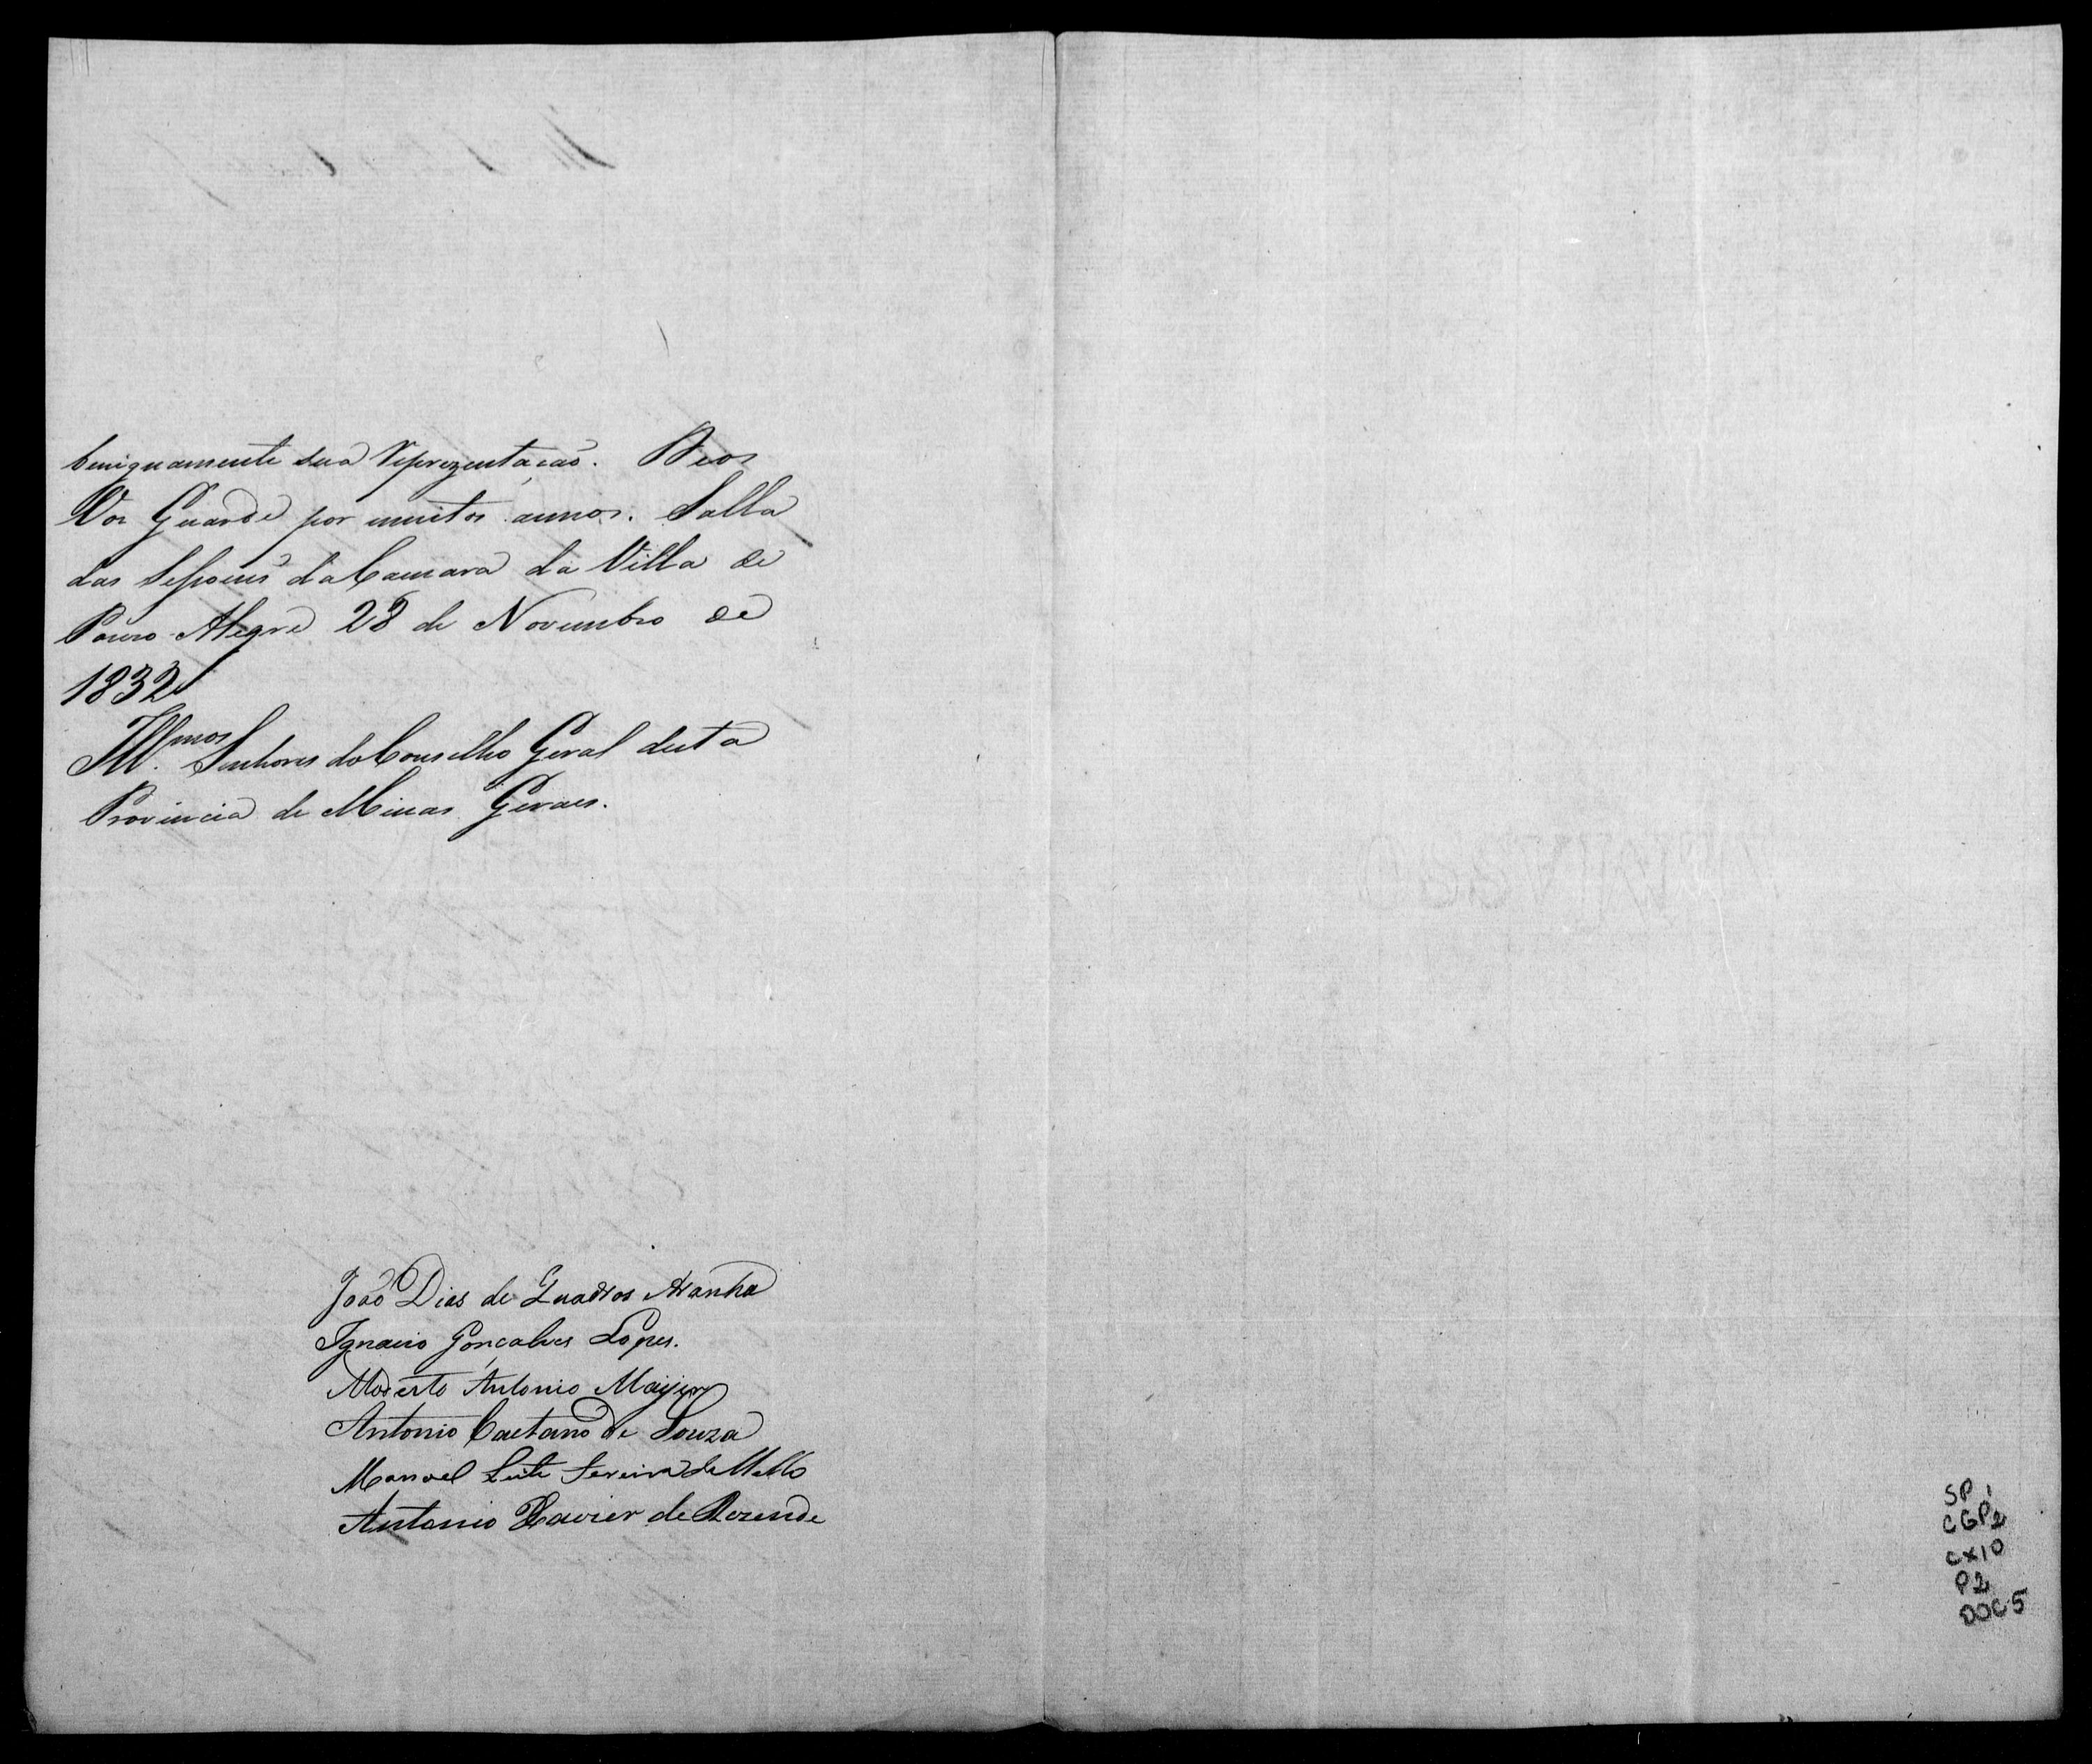 benignamente sua Reprezentação. Deos
Vos Guarde por muitos annos. Salla
das Sessoens da Camara da Villa de
Pouzo Alegre 28 de Novembro de
1832
Ill.mos Senhores do Conselho Geral desta
Provincia de Minas Geraes.
João Dias de Quadros Aranha
Ignacio Gonçalves Lopes.
Modesto Antonio Mayer
Antonio Caetano de Souza
Manoel Leite Ferreira de Mello
Antonio Xavier de Rezende
SP 1
CGP2
CX10
P2
DOC.5